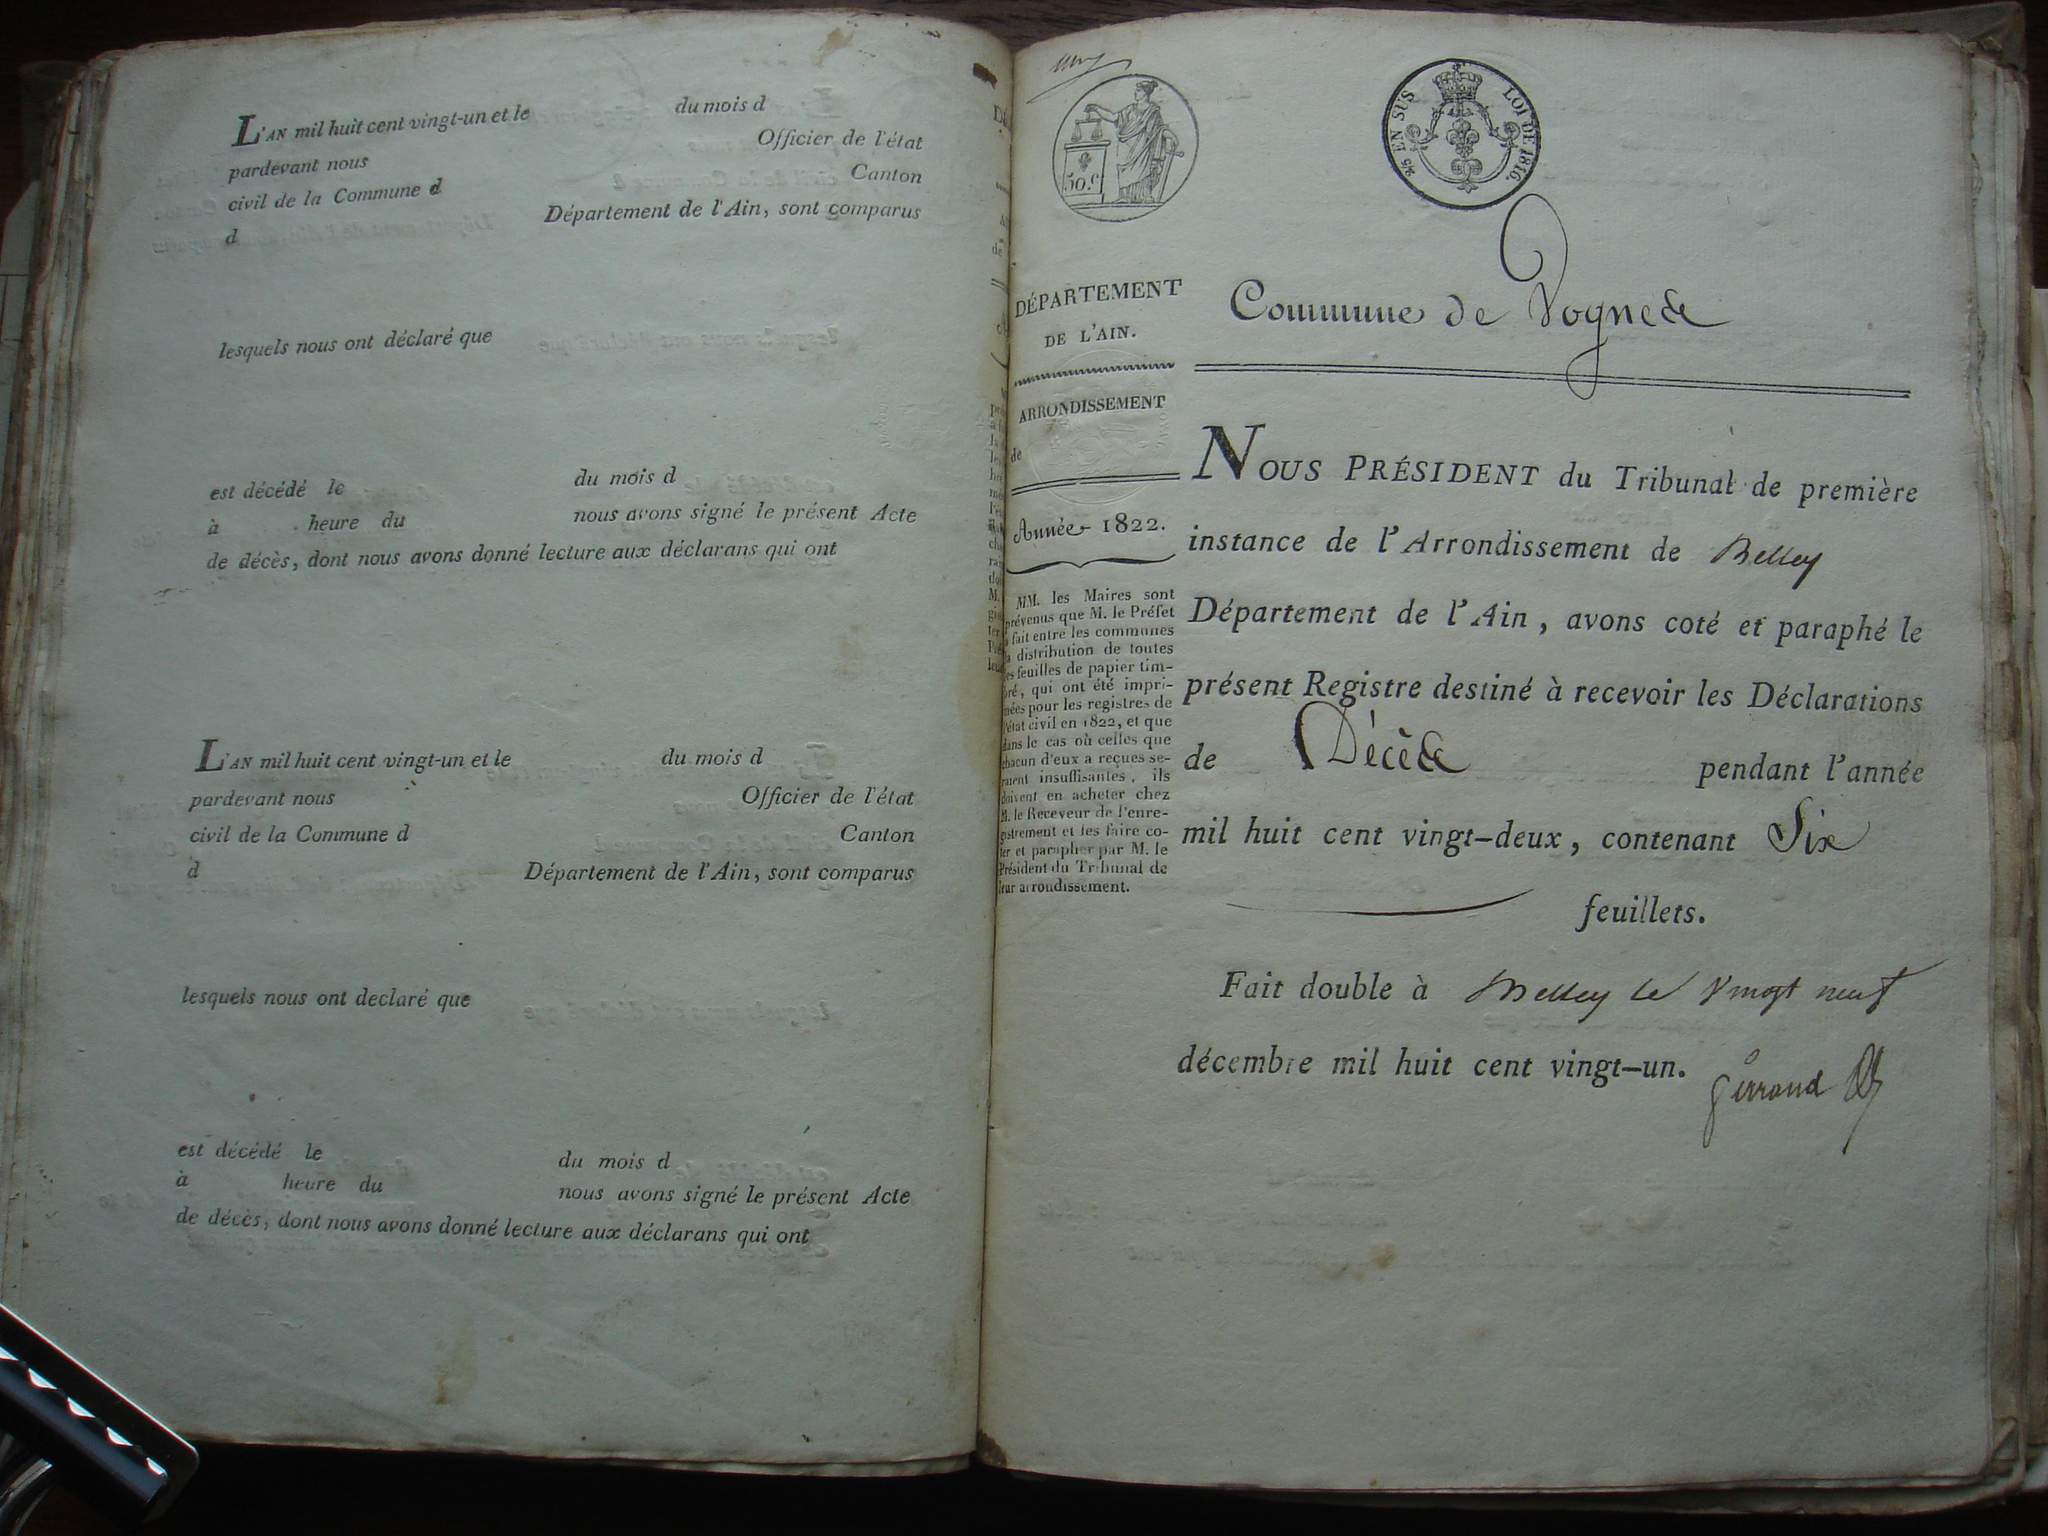 L'AN mil huit cent vingt-un et le du mois d
pardevant nous Officier de l'état
civil de la Commune d Canton
d Département de l'Ain, sont comparus
lesquels nous ont déclaré que
est décédé le du mois d
à heure du nous avons signé le présent Acte
de décès, dont nous avons donné lecture aux déclarans qui ont
L'AN mil huit cent vingt-un et le du mois d
pardevant nous Officier de l'état
civil de la Commune d Canton
d Département de l'Ain, sont comparus
lesquels nous ont declaré que
est décédé le du mois d
à heure du nous avons signé le présent Acte
de décès, dont nous avons donné lecture aux déclarans qui ont
50.c
25 EN SUS LOI DE 1816.
DÉPARTEMENT
DE L'AIN.
ARRONDISSEMENT
de
Année 1822.
MM. les Maires sont
prévenus que M. le Préfet
a fait entre les communes
la distribution de toutes
les feuilles de papier tim-
bré, qui ont été impri-
mées pour les registres de
l'état civil en 1822, et que
dans le cas où celles que
chacun d'eux a reçues se-
raient insuffisantes, ils
doivent en acheter chez
M. le Receveur de l'enre-
gistrement et les faire co-
ter et parapher par M. le
Président du Tribunal de
leur arroudissement.
Commune de Vognes
NOUS PRÉSIDENT du Tribunal de première
instance de l'Arrondissement de Belley
Département de l'Ain, avons coté et paraphé le
présent Registre destiné à recevoir les Déclarations
de Décès pendant l'année
mil huit cent vingt-deux, contenant Six
feuillets.
Fait double à Belley le vingt neuf
décembre mil huit cent vingt-un.
Girraud